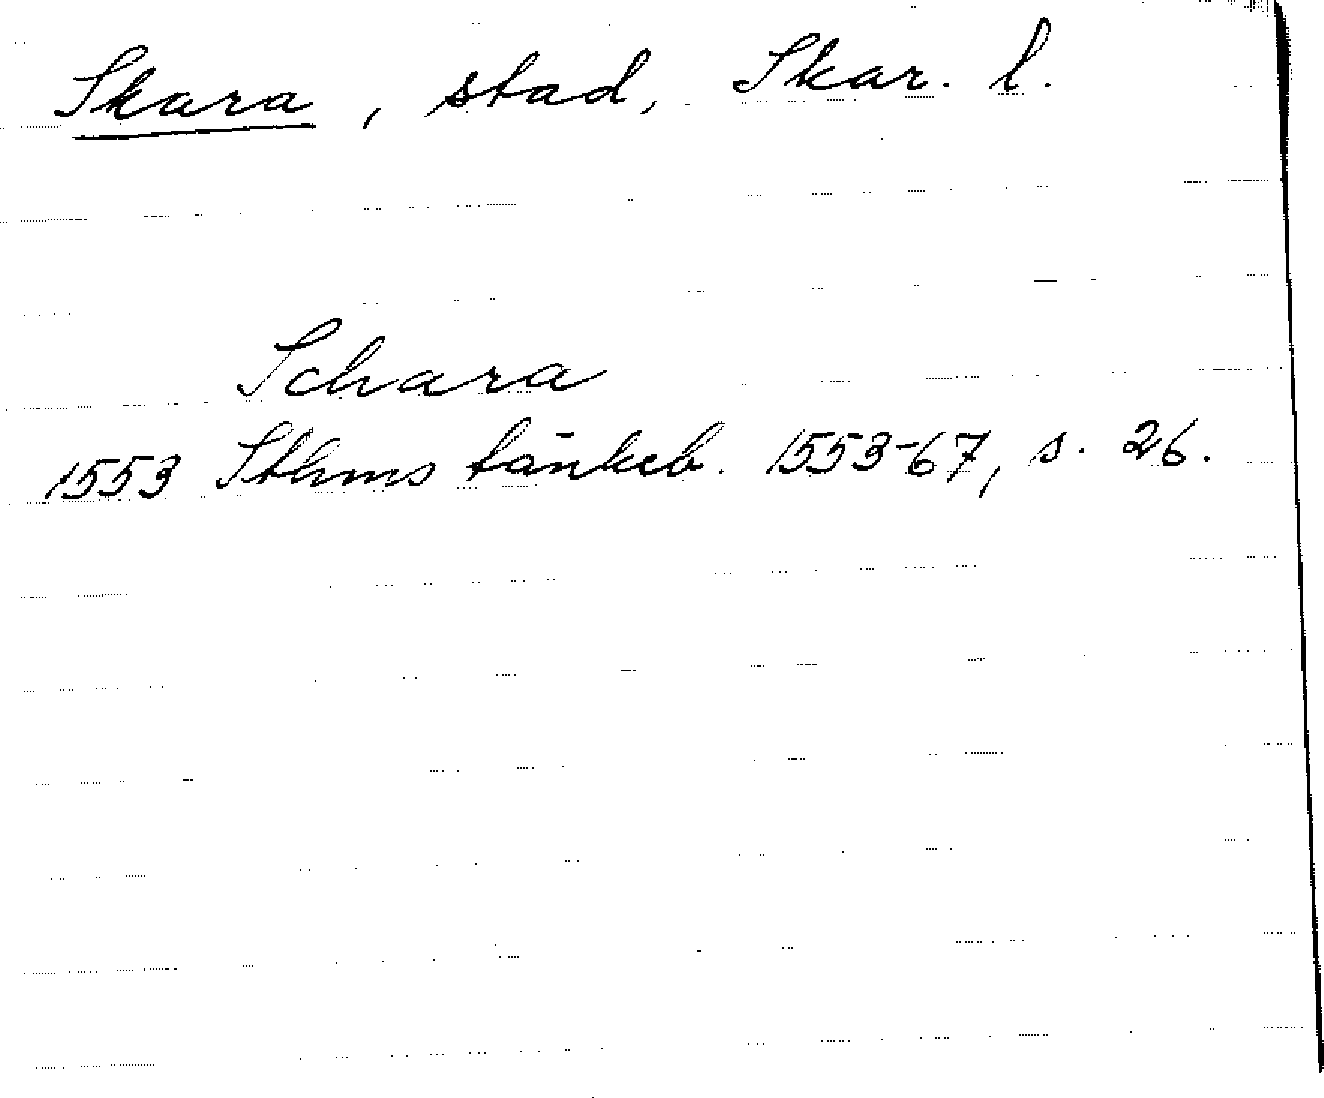 Skara, stad, Skar. l.
Schara
1553 Sthms tänkeb. 1553-67, s. 26.